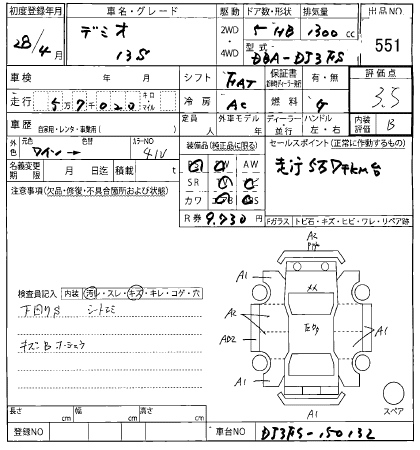 初度登録年月 車名・グレード 駆動 ドア数・形状 排気量 出品NO.
28/4月 デミオ 13S 2WD 4WD 5 HB 1300 cc 551
型式 DBA-DJ3FS
車検 年 月 シフト FAT 保証書 有・無 評価点 3.5
走行 57020 キロ マイル 冷房 AC 燃料 ガ
車歴 自家用・レンタ・事業用( ) 定員 人 外車モデル 年 ディーラー 並行 ハンドル 左・右 内装評価 B
外色 元色 ワイン 色替 カラーNO 41V
装備品(純正品に限る) セールスポイント(正常に作動するもの)
走行5万7千km台
名義変更期限 月 日迄 積載 t
PS PW AW
SR
カワ
R券 9,730円
注意事項(欠品・修復・不具合箇所および状態)
Fガラス トビ石・キズ・ヒビ・ワレ・リペア跡
検査員記入 内装 汚レ・スレ・キズ・キレ・コゲ・穴
下回りS シートシミ
A2
A1
A1
A2
AD2
A1
A1
A1
スペア
長さ cm 幅 cm 高さ cm
登録NO 車台NO DJ3FS-150132